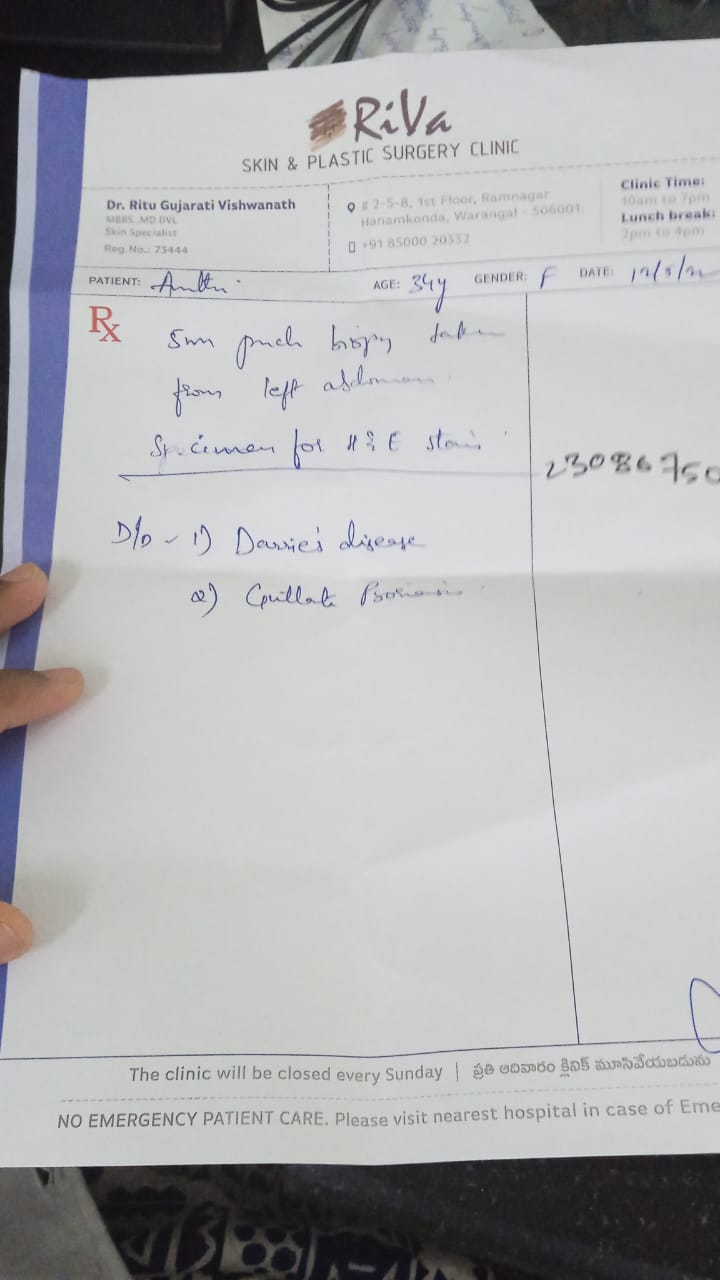 RiVa
SKIN & PLASTIC SURGERY CLINIC
Dr. Ritu Gujarati Vishwanath
MBBS.,MD DVL
Skin Specialist
Reg.No.: 73444
# 2-5-8, 1st Floor, Ramnagar
Hanamkonda, Warangal - 506001.
+91 85000 20332
Clinic Time:
10am to 7pm
Lunch break:
2pm to 4pm
PATIENT: AGE: 34y GENDER: F DATE:
Rx
5mm punch biopsy taken
from left abdomen
Specimen for H & E stain
23086750
D/D - 1) Darrie's disease
2) Guttate Psoriasis
The clinic will be closed every Sunday | ప్రతి ఆదివారం క్లినిక్ మూసివేయబడును
NO EMERGENCY PATIENT CARE. Please visit nearest hospital in case of Eme